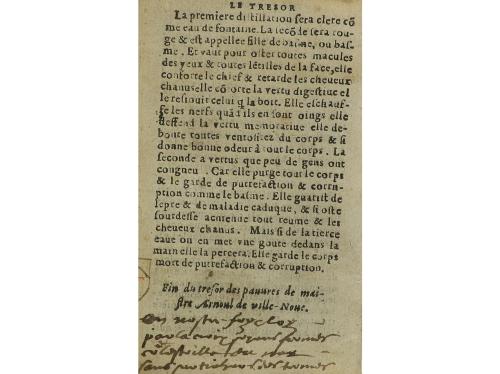 LE TRESOR
La premiere distillation sera clere cõ
me eau de fontaine. La secõde sera rou-
ge & est appellee fille de basme, ou bas-
me. Et vaut pour oster toutes macules
des yeux & toutes lẽtilles de la face, elle
conforte le chief & retarde les cheueux
chanus elle cõorte la vertu digestiue el
le resiouit celui q la boit. Elle eschauf-
fe les nerfs quãd ils en sont oings elle
deffend la vertu memoratiue elle de-
boute toutes ventositez du corps & si
donne bonne odeur à tout le corps. La
seconde a vertus que peu de gens ont
congneu. Car elle purge tout le corps
& le garde de putrefaction & corru-
ption comme le basme. Elle guarist de
lepre & de maladie caduque, & si oste
sourdesse ancienne tout reume & les
cheueux chanus. Mais si de la tierce
eaue on en met vne goute dedans la
main elle la percera. Elle garde le corps
mort de putrefaction & corruption.
Fin du tresor des pauures de mai-
stre Arnoul de ville-Noue.